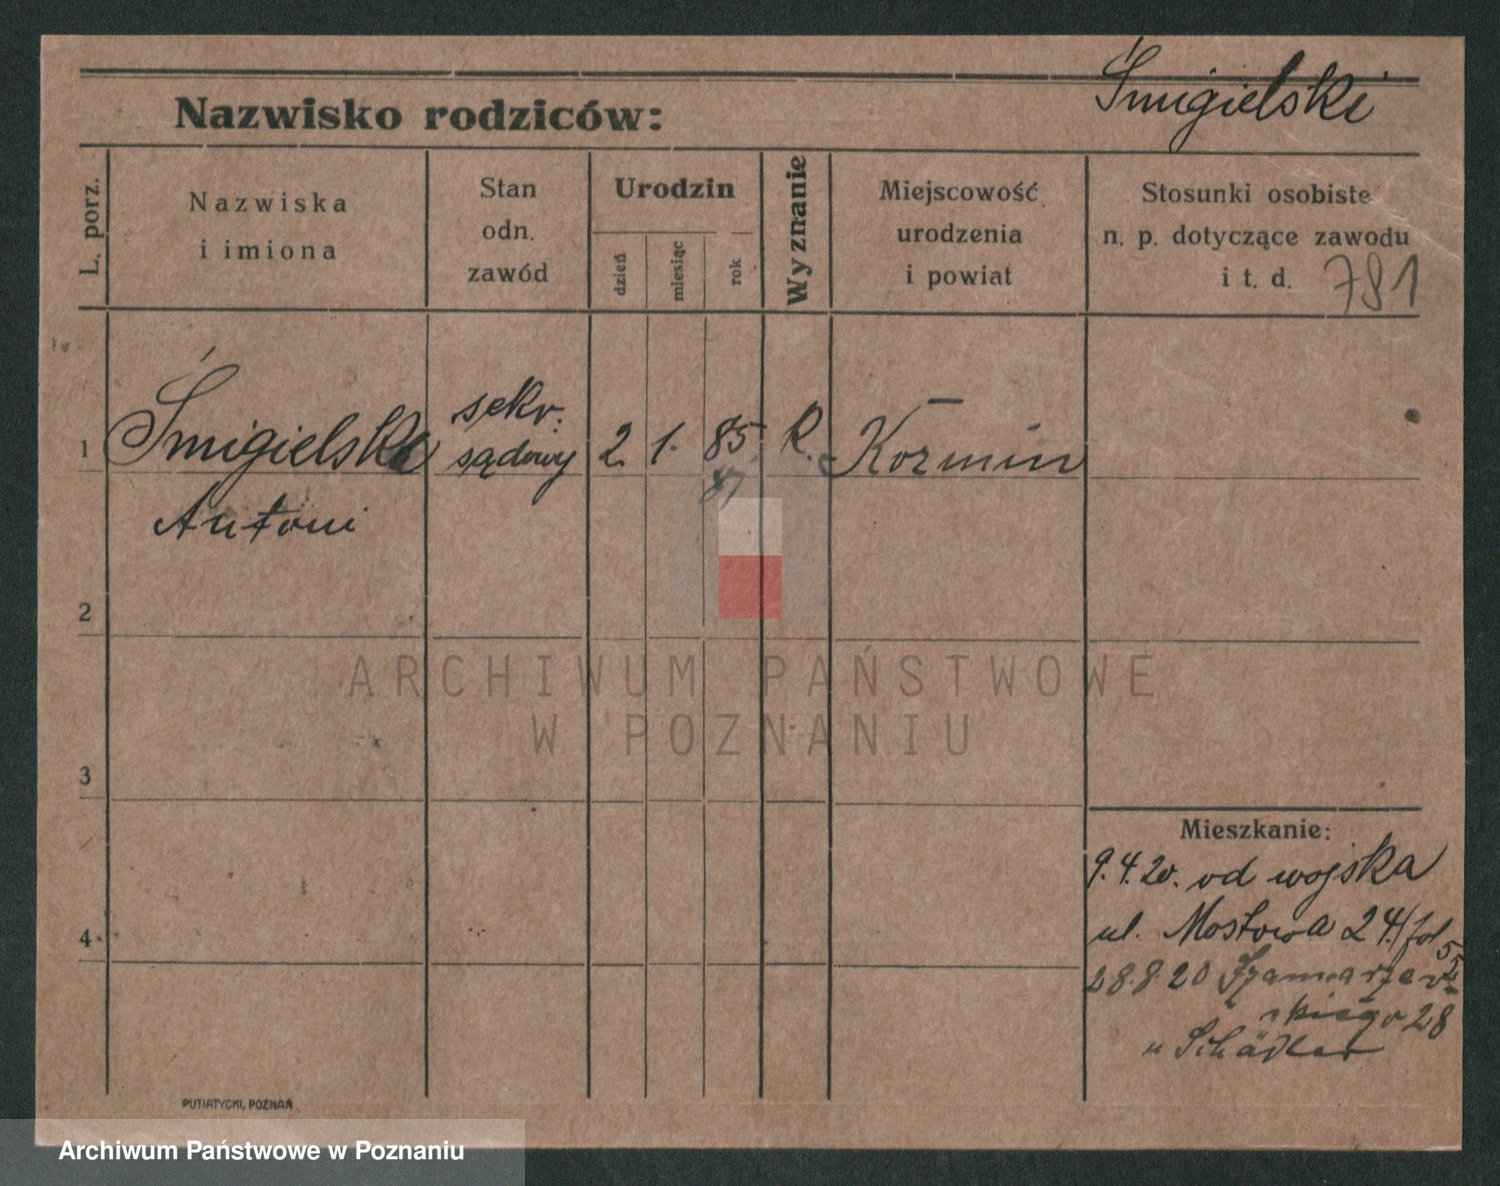 Śmigielski
Nazwisko rodziców:
L. porz.
Nazwiska
i imiona
Stan
odn.
zawód
Urodzin
dzień
miesiąc
rok
Wyznanie
Miejscowość
urodzenia
i powiat
Stosunki osobiste
n. p. dotyczące zawodu
i t. d.
781
1
Śmigielski
Antoni
sekr.
sądowy
2.
1.
85
87
R.
Kozmin
2
3
4
Mieszkanie:
9.4.20. od wojska
ul. Mostowa 24
28.8.20
skiego 28
u Schädler
PUTIATYCKI, POZNAŃ
ARCHIWUM PAŃSTWOWE
W POZNANIU
Archiwum Państwowe w Poznaniu